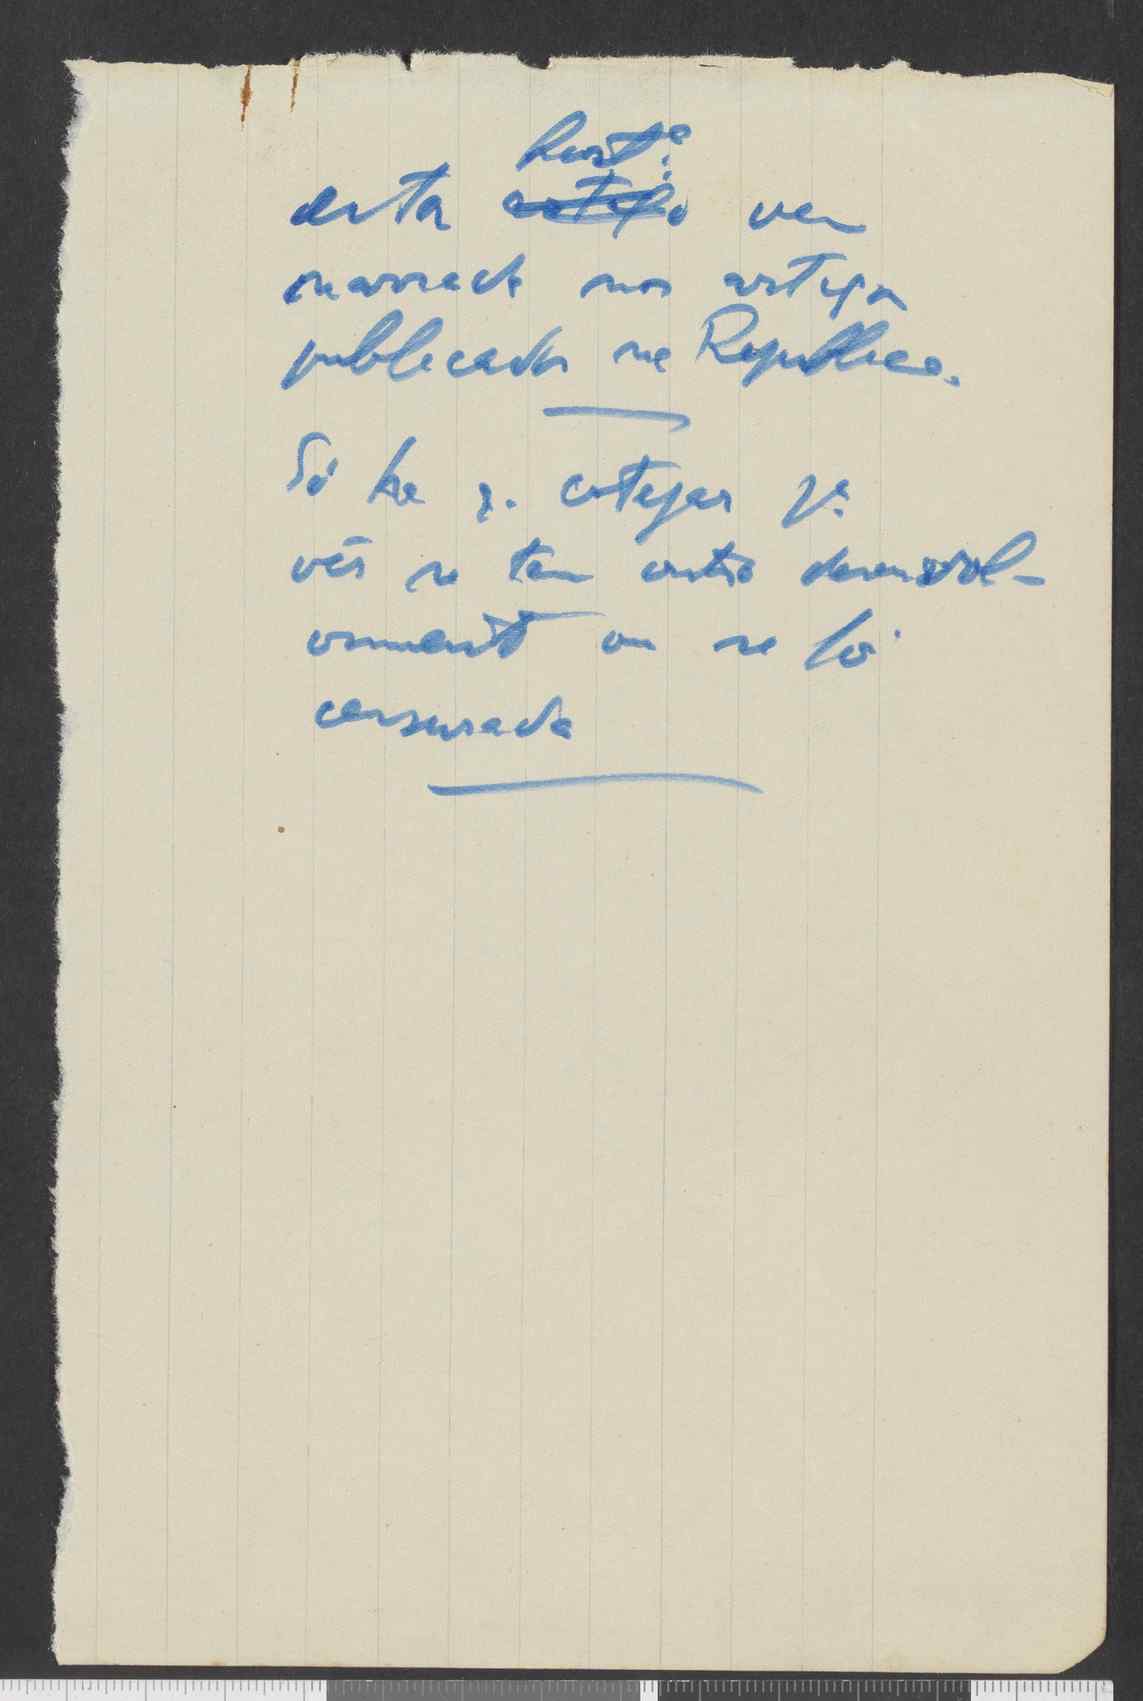 hist.ª
esta ver
narrada nos artigos
publicados na Republica.
Só ha q. cotejar p.ª
vêr se tem outro desenvol-
vimento ou se foi
censurada